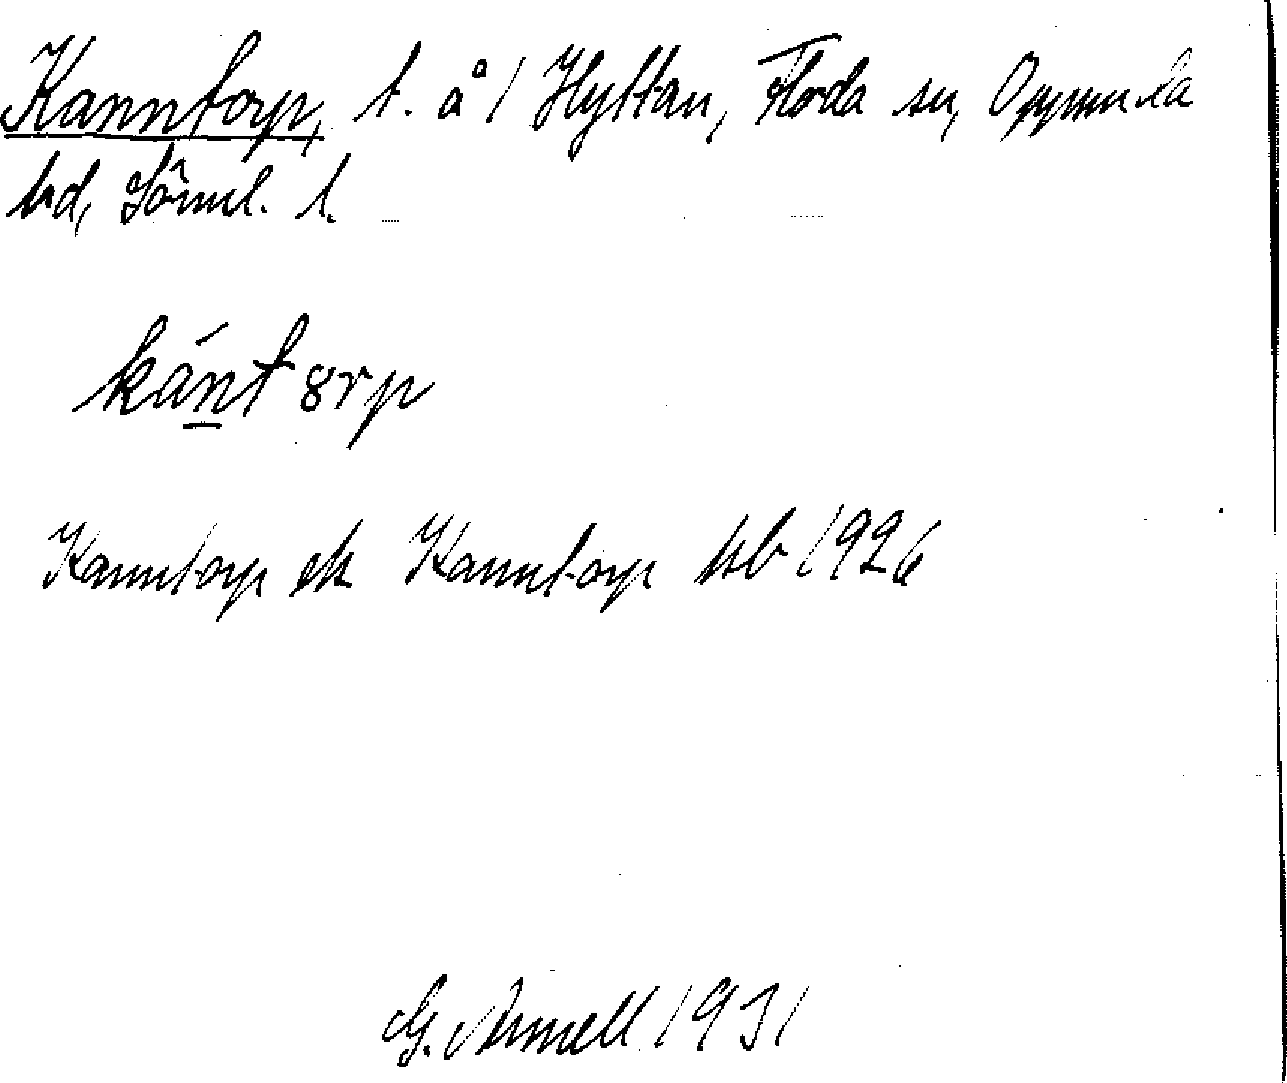 Kanntorp, t. å 1 Hyltan, Floda sn, Oppunda
hd, Sörml. l.
kánt8rp
Kanntorp ek Kanntorp kb 1926
G. Arnell 1931